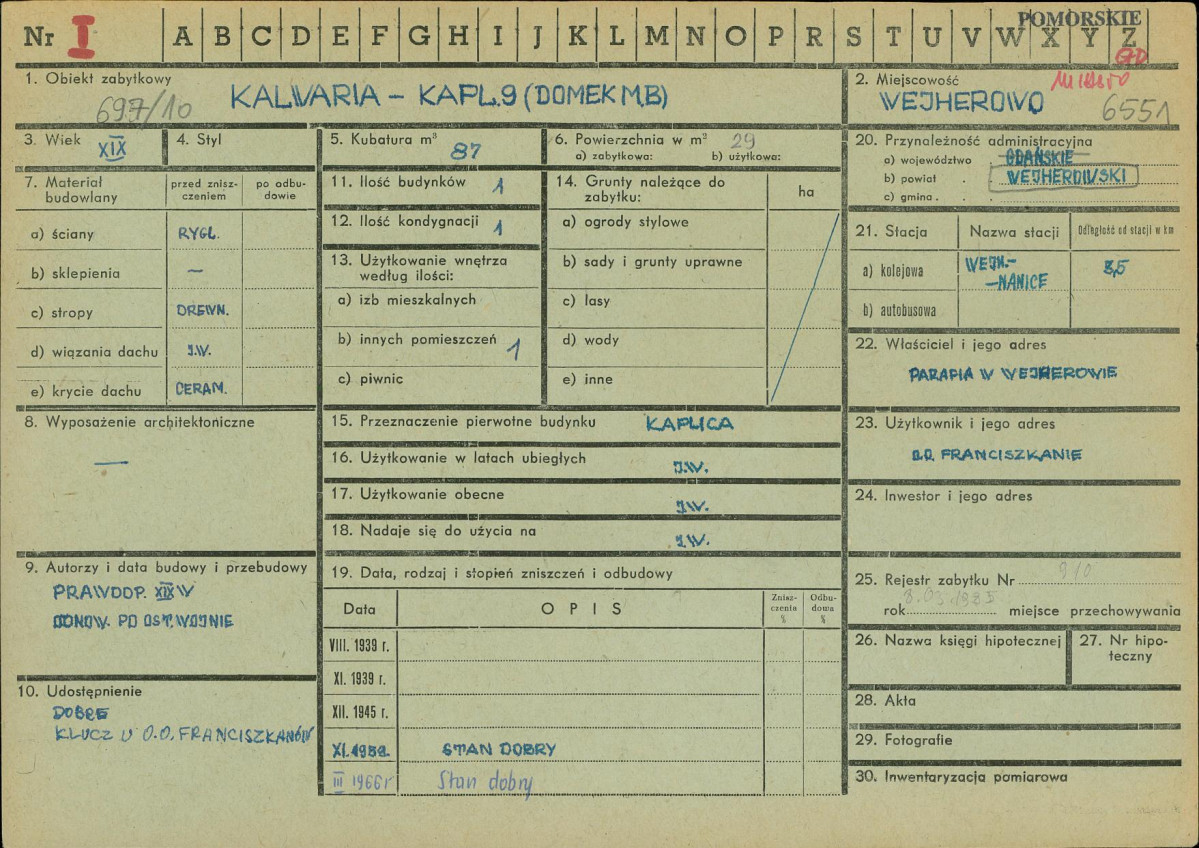 POMORSKIE
Nr I A B C D E F G H I J K L M N O P R S T U V W X Y Z
1. Obiekt zabytkowy
697/10
KALWARIA – KAPL.9 (DOMEK M.B)
2. Miejscowość
miasto
WEJHEROWO
6551
3. Wiek XIX
4. Styl
5. Kubatura m³ 87
6. Powierzchnia w m² 29
a) zabytkowa: b) użytkowa:
7. Materiał budowlany
przed znisz-
czeniem
po odbu-
dowie
a) ściany RYGL.
b) sklepienia —
c) stropy DREWN.
d) wiązania dachu J.W.
e) krycie dachu CERAM.
8. Wyposażenie architektoniczne
—
9. Autorzy i data budowy i przebudowy
PRAWDOP. XIX W
ODNOW. PO OST. WOJNIE
10. Udostępnienie
DOBRE
KLUCZ U O.O. FRANCISZKANÓW
11. Ilość budynków 1
12. Ilość kondygnacji 1
13. Użytkowanie wnętrza
według ilości:
a) izb mieszkalnych
b) innych pomieszczeń 1
c) piwnic
14. Grunty należące do
zabytku:
ha
a) ogrody stylowe
b) sady i grunty uprawne
c) lasy
d) wody
e) inne
15. Przeznaczenie pierwotne budynku KAPLICA
16. Użytkowanie w latach ubiegłych J.W.
17. Użytkowanie obecne J.W.
18. Nadaje się do użycia na J.W.
19. Data, rodzaj i stopień zniszczeń i odbudowy
Data
OPIS
Znisz-
czenia
%
Odbu-
dowa
%
VIII. 1939 r.
XI. 1939 r.
XII. 1945 r.
XI. 1959. STAN DOBRY
III 1966 r Stan dobry
20. Przynależność administracyjna
a) województwo GDAŃSKIE
b) powiat . . WEJHEROWSKI
c) gmina . .
21. Stacja
Nazwa stacji
Odległość od stacji w km
a) kolejowa WEJH.-
-NANICE
3,5
b) autobusowa
22. Właściciel i jego adres
PARAFIA W WEJHEROWIE
23. Użytkownik i jego adres
O.O. FRANCISZKANIE
24. Inwestor i jego adres
25. Rejestr zabytku Nr 910
rok 8.03.1985 miejsce przechowywania
26. Nazwa księgi hipotecznej
27. Nr hipo-
teczny
28. Akta
29. Fotografie
30. Inwentaryzacja pomiarowa